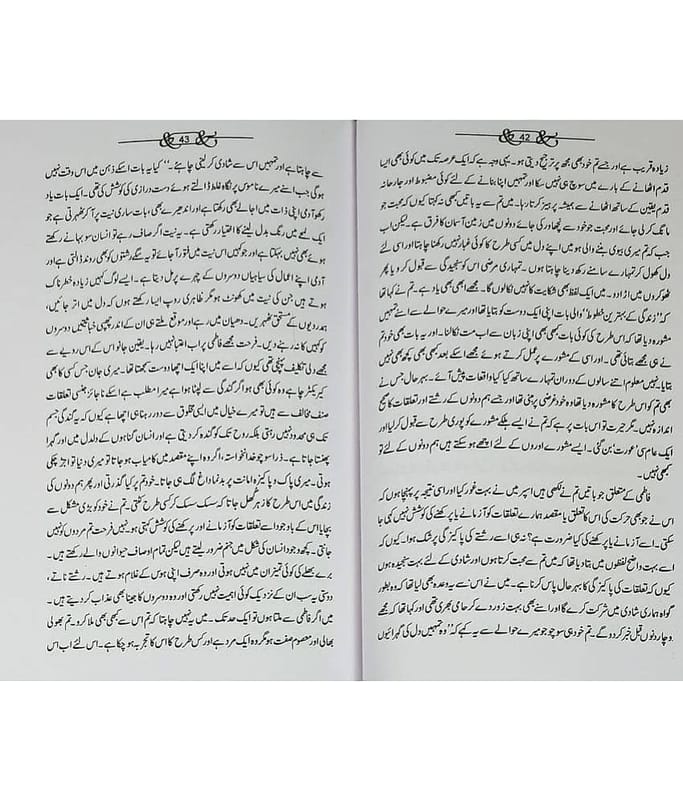 42
زیادہ قریب ہے اور جسے تم خود بھی مجھ پر ترجیح دیتی ہو۔ یہی وجہ ہے کہ ایک عرصہ تک میں کوئی بھی ایسا
قدم اٹھانے کے بارے میں سوچ ہی نہیں سکا اور تمہیں اپنا بنانے کے لئے کوئی مضبوط اور جارحانہ
قدم یقین کے ساتھ اٹھانے سے ہمیشہ پرہیز کرتا رہا۔ میں تم سے یہ باتیں کبھی نہ کہتا کیوں کہ محبت جو
مانگ کر لی جائے اور محبت جو خود سے نچھاور کی جائے دونوں میں زمین آسمان کا فرق ہے۔ لیکن اب
جب کہ تم میری بیوی بننے والی ہو میں اپنے دل میں کسی طرح کا کوئی غبار نہیں رکھنا چاہتا اور اسی لئے
دل کھول کر تمہارے سامنے رکھ دینا چاہتا ہوں۔ تمہاری مرضی اس کو سنجیدگی سے قبول کرو یا پھر
ٹھوکروں میں اڑا دو۔ میں ایک لفظ بھی شکایت کا نہیں نکالوں گا۔ مجھے ابھی بھی یاد ہے۔ تم نے کہا تھا
کہ ”زندگی کے بہترین خطوط“ والی بات اپنی ایک دوست کو بتایا تھا اور میرے حوالے سے اسنے تمہیں
مشورہ دیا تھا کہ اس طرح کی کوئی بات کبھی بھی اپنی زبان سے اب مت نکالنا۔ اور یہ بات بھی خود تم
نے ہی مجھے بتائی تھی۔ اور اسی کے مشورے پر عمل کرتے ہوئے مجھے اسکے بعد کبھی بھی کچھ بھی نہیں
بتایا۔ نہیں معلوم اتنے سالوں کے دوران تمہارے ساتھ کیا کیا واقعات پیش آئے۔ بہر حال جس نے
بھی تم کو اس طرح کا مشورہ دیا تھا وہ خود غرضی پر مبنی تھا اور جسے ہم دونوں کے رشتے اور تعلقات کا صحیح
اندازہ نہیں۔ مگر حیرت تو اس بات پر ہے کہ تم نے ایسے ہلکے مشورے کو پوری طرح سے قبول کر لیا اور
ایک عام سی عورت بن گئی۔ ایسے مشورے اوروں کے لئے اچھے ہو سکتے ہیں ہم دونوں کے لئے تو
کبھی نہیں۔
فاطمی کے متعلق جو باتیں تم نے لکھی ہیں اسپر میں نے بہت غور کیا اور اسی نتیجہ پر پہنچا ہوں کہ
اس نے جو بھی حرکت کی اس کا تعلق یا مقصد ہمارے تعلقات کو آزمانے یا پرکھنے کی کوشش نہیں کی جا
سکتی۔ اسے آزمانے یا پرکھنے کی کیا ضرورت ہے؟ نہ ہی اسے رشتے کی پاکیزگی پر شک ہوا۔ کیوں کہ
اسے بہت واضح لفظوں میں بتا دیا تھا کہ میں تم سے محبت کرتا ہوں اور شادی کے لئے بہت سنجیدہ ہوں
کیوں کہ تعلقات کی پاکیزگی کا بہر حال پاس کرنا ہے۔ میں نے اس سے یہ وعدہ بھی لیا تھا کہ وہ بطور
گواہ ہماری شادی میں شرکت کرے گا اور اسنے بھی بہت زور دے کر حامی بھری تھی اور کہا تھا کہ مجھے
دو چار دنوں قبل خبر کر دو گے۔ تم خود ہی سوچو جو میرے حوالے سے یہ کہے کہ ”وہ تمہیں دل کی گہرائیوں
43
سے چاہتا ہے اور تمہیں اس سے شادی کر لینی چاہئے۔“ کیا یہ بات اسکے ذہن میں اس وقت نہیں
ہو گی جب اسنے میرے ناموس پر نگاہ غلط ڈالتے ہوئے دست درازی کی کوشش کی تھی۔ ایک بات یاد
رکھو آدمی اپنی ذات میں اجالے بھی رکھتا ہے اور اندھیرے بھی، بات ساری نیت پر آ کر ٹھہرتی ہے جو
ایک لمحے میں رنگ بدل لینے کا اختیار رکھتی ہے۔ یہ نیت اگر صاف رہے تو انسان سو بہانے رکھتے
ہوئے بھی نہیں، بہکتا اور جو کہیں اس نیت میں فتور آ جائے تو یہ سگے رشتوں کو بھی روند ڈالتی ہے اور
آدمی اپنے اعمال کی سیاہیاں دوسروں کے چہرے پر مل دیتا ہے۔ ایسے لوگ کہیں زیادہ خطرناک
ہوتے ہیں جن کی نیت میں کھوٹ ہو مگر ظاہری روپ ایسا رکھتے ہوں کہ دل میں اتر جائیں،
ہمدردیوں کے مستحق ٹھہریں۔ دھیان میں رہے اور موقع ملتے ہی ان کے اندر چھپی خباثتیں دوسروں
کو کہیں کا نہ رہنے دیں۔ فرحت مجھے فاطمی پر اب اعتبار نہیں رہا۔ یقین جانو اس کے اس رویے سے
مجھے دلی تکلیف پہنچی تھی کیوں کہ اسے میں اپنا ایک اچھا دوست سمجھتا تھا۔ میری جان جس کسی کا بھی
کیریکٹر چاہے وہ کوئی بھی ہو اگر گندگی سے لپٹا ہوا ہے میرا مطلب ہے اسکے ناجائز جنسی تعلقات
صنف مخالف سے ہیں تو میرے خیال میں ایسی مخلوق سے دور رہنا ہی اچھا ہے کیوں کہ یہ گندگی جسم
تک ہی محدود نہیں رہتی بلکہ روح تک کو گندہ کر دیتی ہے اور انسان گناہوں کے دلدل میں اور گہرا
پھنستا جاتا ہے۔ ذرا سوچو خدانخواستہ، اگر وہ اپنے مقصد میں کامیاب ہو جاتا تو میری دنیا تو اجڑ چکی
ہوتی۔ میری پاک و پاکیزہ امانت پر بدنما داغ لگ ہی جاتا۔ خود تم پر کیا گذرتی اور پھر ہم دونوں کی
زندگی میں اس طرح کا زہر گھل جاتا کہ سسک سسک کر کسی طرح کٹتی۔ تم نے خود کو بڑی مشکل سے
بچایا اس کے باوجود اسے تعلقات کو آزمانے اور پرکھنے کی کوشش کہتی ہو۔ نہیں فرحت تم مردوں کو نہیں
جانتی۔ کچھ وجود انسان کی شکل میں جنم ضرور لیتے ہیں لیکن تمام اوصاف حیوانوں والے رکھتے ہیں۔
برے بھلے کی کوئی تمیز ان میں نہیں ہوتی اور وہ صرف اپنی ہوس کے غلام ہوتے ہیں۔ رشتے ناتے،
دوستی یہ سب ان کے نزدیک کوئی اہمیت نہیں رکھتی اور وہ دوسروں کا جینا بھی عذاب کر دیتے ہیں۔
میں اگر فاطمی سے ملتا ہوں تو ایک حد تک۔ میں یہ نہیں چاہتا کہ تم اس سے کبھی بھی ملا کرو۔ تم بھولی
بھالی اور معصوم صفت ہو مگر وہ ایک مرد ہے اور کس طرح کا اس کا تجربہ ہو چکا ہے۔ اس لئے اب اس